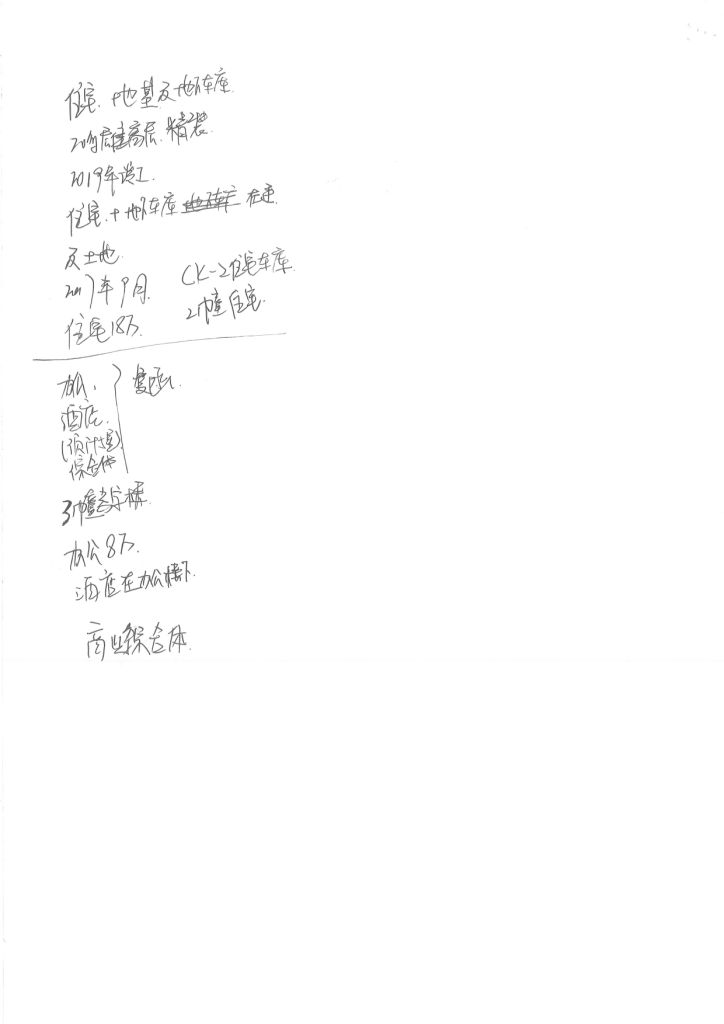 住宅、地基及地下车库
20幢高层.精装
2019年竣工.
住宅.+地下车库 在建
及土地
2017年9月.
CK-2住宅车库
2幢住宅.
住宅18万.
办公、
酒店.
(预计违)
综合体
复函.
3幢写字楼.
办公8万.
酒店在办公楼下.
商业综合体.